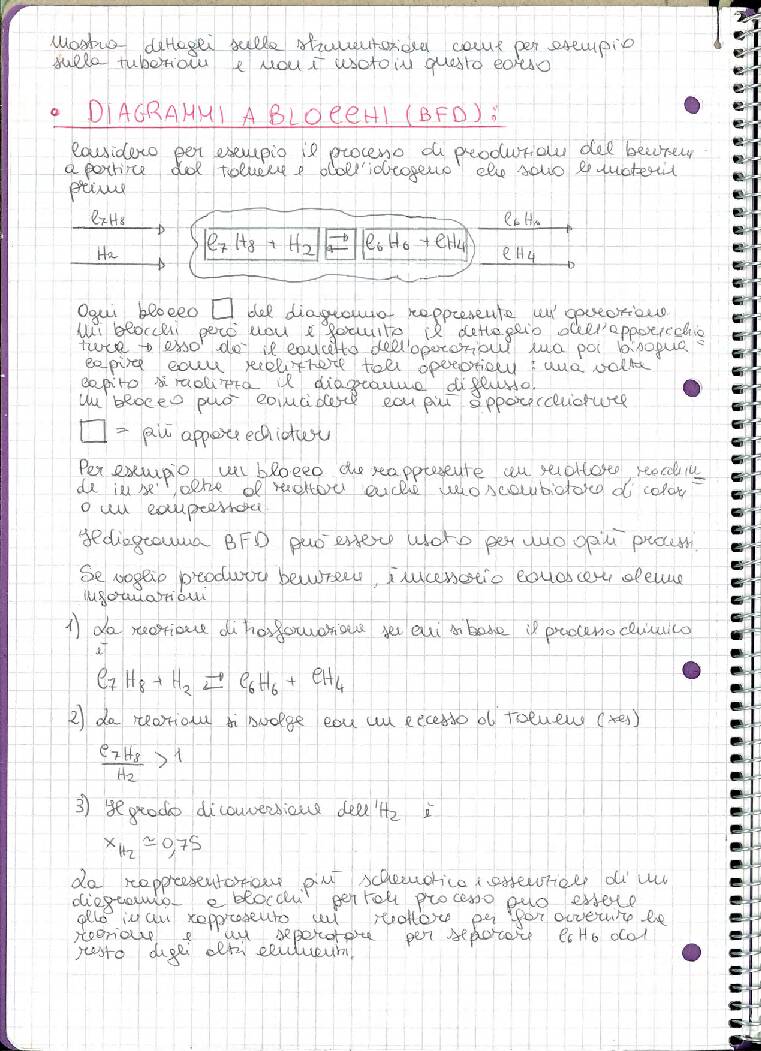 mostra dettagli sulla strumentazione come per esempio
sulla tubazioni e non è usato in questo corso
• DIAGRAMMI A BLOCCHI (BFD):
Considero per esempio il processo di produzione del benzene
a partire dal toluene e dall'idrogeno che sono le materie
prime
C7H8
C6H6
C7H8 + H2 ⇄ C6H6 + CH4
H2
CH4
Ogni blocco □ del diagramma rappresenta un'operazione
Nei blocchi però non è fornito il dettaglio dell'apparecchia
tura → esso dà il concetto dell'operazioni ma poi bisogna
capire come realizzare tali operazioni: una volta
capito si realizza il diagramma di flusso.
Un blocco può coincidere con più apparecchiature
□ = più apparecchiature
Per esempio un blocco che rappresenta un reattore racchiu=
de in sé, oltre al reattore anche uno scambiatore di calore
o un compressore
Il diagramma BFD può essere usato per uno o più processi.
Se voglio produrre benzene, è necessario conoscere alcune
informazioni
1) La reazione di trasformazione su cui si basa il processo chimico
è
C7H8 + H2 ⇄ C6H6 + CH4
2) La reazione si svolge con un eccesso di toluene (xes)
C7H8
/H2 > 1
3) Il grado di conversione dell'H2 è
xH2 ≃ 0,75
La rappresentazione più schematica e essenziale di un
diagramma a blocchi per tale processo può essere
in cui rappresento un reattore per far avvenire la
reazione e un separatore per separare C6H6 dal
resto degli altri elementi.